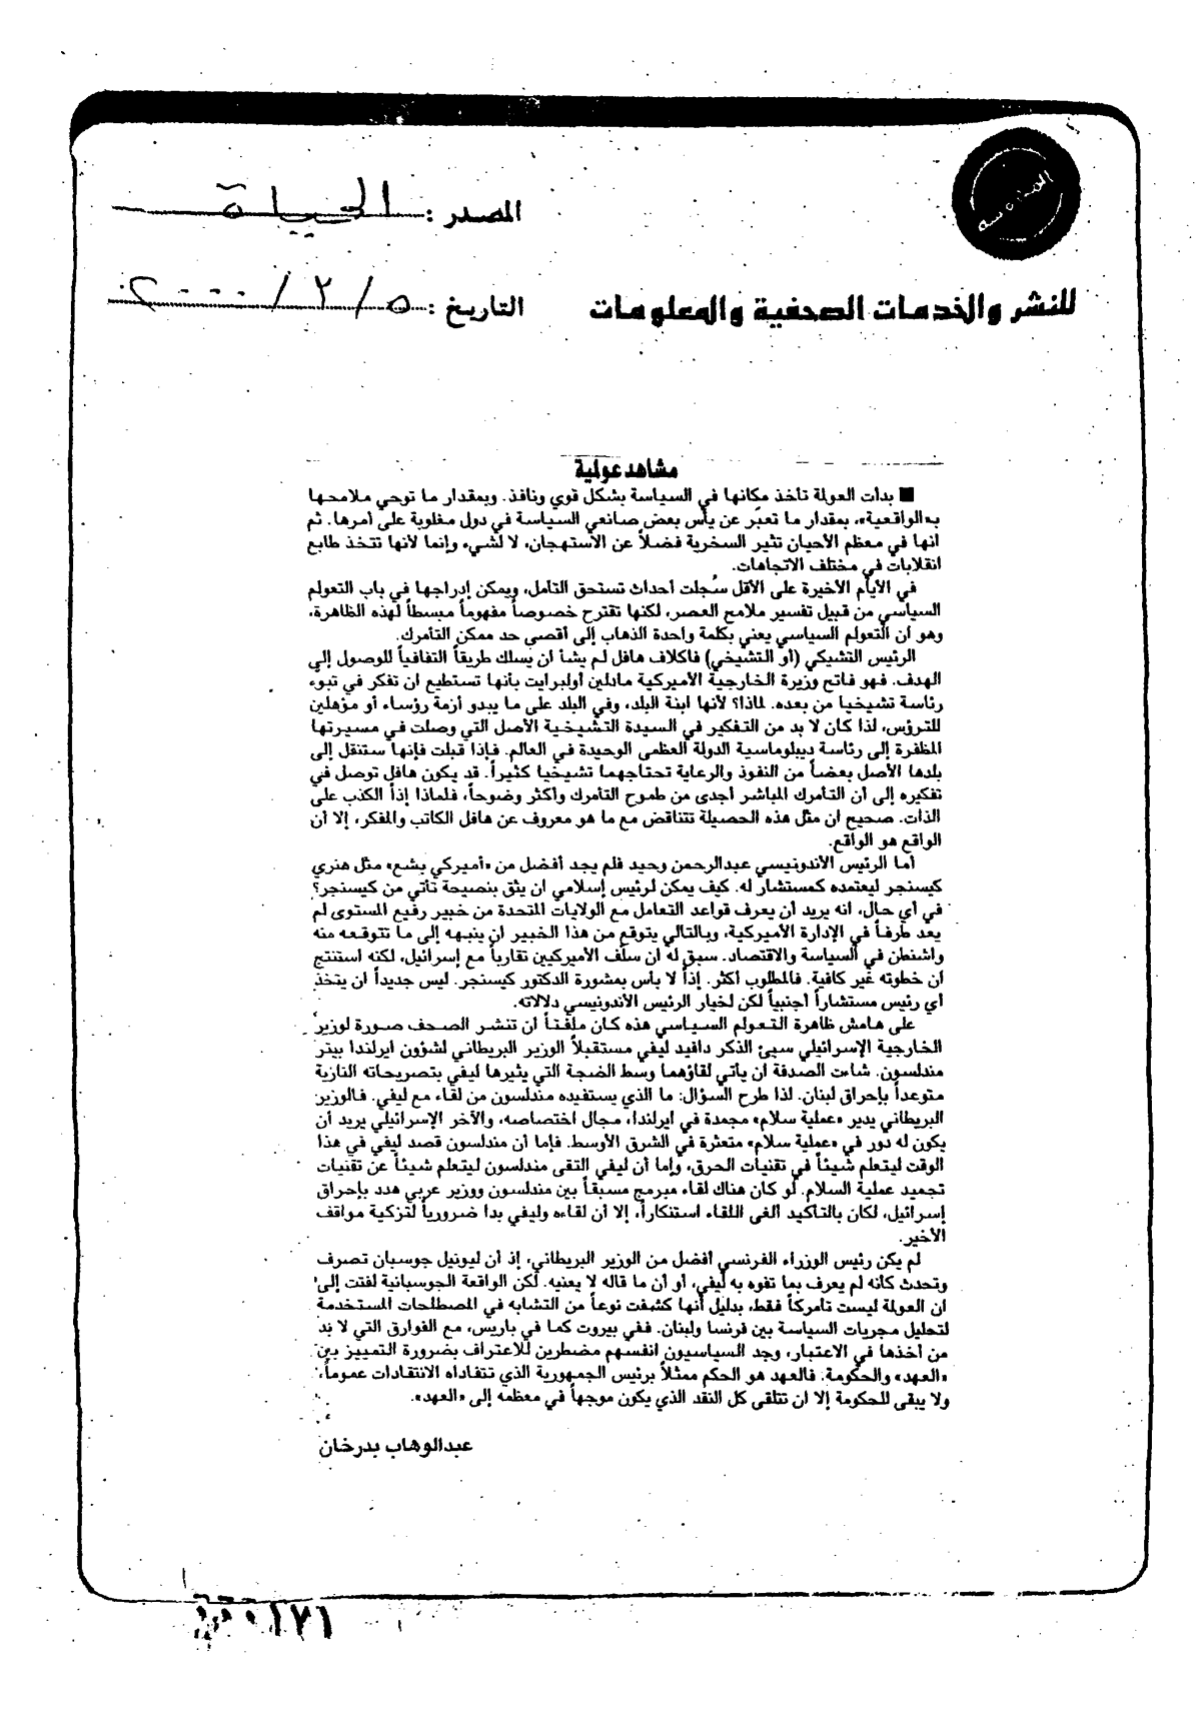 المصدر : الحياة
للنشر والخدمات الصحفية والمعلومات
التاريخ : ٥ / ٢ / ٢٠٠٠
مشاهد عولمية
■ بدأت العولمة تأخذ مكانها في السياسة بشكل قوي ونافذ. وبمقدار ما توحي ملامحها
بـ«الواقعية»، بمقدار ما تعبّر عن يأس بعض صانعي السياسة في دول مغلوبة على أمرها. ثم
انها في معظم الأحيان تثير السخرية فضلاً عن الاستهجان، لا لشيء وإنما لأنها تتخذ طابع
انقلابات في مختلف الاتجاهات.
في الأيام الأخيرة على الأقل سُجلت أحداث تستحق التأمل، ويمكن إدراجها في باب التعولم
السياسي من قبيل تفسير ملامح العصر، لكنها تقترح خصوصاً مفهوماً مبسطاً لهذه الظاهرة،
وهو أن التعولم السياسي يعني بكلمة واحدة الذهاب إلى أقصى حد ممكن التأمرك.
الرئيس التشيكي (أو التشيخي) فاكلاف هافل لم يشأ ان يسلك طريقاً التفافياً للوصول إلى
الهدف. فهو فاتح وزيرة الخارجية الأميركية مادلين أولبرايت بأنها تستطيع ان تفكر في تبوء
رئاسة تشيخيا من بعده. لماذا؟ لأنها ابنة البلد، وفي البلد على ما يبدو أزمة رؤساء أو مؤهلين
للترؤس، لذا كان لا بد من التفكير في السيدة التشيخية الأصل التي وصلت في مسيرتها
المظفرة إلى رئاسة ديبلوماسية الدولة العظمى الوحيدة في العالم. فإذا قبلت فإنها ستنقل إلى
بلدها الأصل بعضاً من النفوذ والرعاية تحتاجهما تشيخيا كثيراً. قد يكون هافل توصل في
تفكيره إلى أن التأمرك المباشر أجدى من طموح التأمرك وأكثر وضوحاً، فلماذا إذاً الكذب على
الذات. صحيح ان مثل هذه الحصيلة تتناقض مع ما هو معروف عن هافل الكاتب والمفكر، إلا أن
الواقع هو الواقع.
أما الرئيس الأندونيسي عبدالرحمن وحيد فلم يجد أفضل من «أميركي بشع» مثل هنري
كيسنجر ليعتمده كمستشار له. كيف يمكن لرئيس إسلامي ان يثق بنصيحة تأتي من كيسنجر؟
في أي حال، انه يريد أن يعرف قواعد التعامل مع الولايات المتحدة من خبير رفيع المستوى لم
يعد طرفاً في الإدارة الأميركية، وبالتالي يتوقع من هذا الخبير ان ينبهه إلى ما تتوقعه منه
واشنطن في السياسة والاقتصاد. سبق له ان سلّف الأميركيين تقارباً مع إسرائيل، لكنه استنتج
ان خطوته غير كافية. فالمطلوب أكثر. إذاً لا بأس بمشورة الدكتور كيسنجر. ليس جديداً ان يتخذ
أي رئيس مستشاراً أجنبياً لكن لخيار الرئيس الأندونيسي دلالاته.
على هامش ظاهرة التعولم السياسي هذه كان ملفتاً أن تنشر الصحف صورة لوزير
الخارجية الإسرائيلي سيئ الذكر دافيد ليفي مستقبلاً الوزير البريطاني لشؤون ايرلندا بيتر
مندلسون. شاءت الصدفة ان يأتي لقاؤهما وسط الضجة التي يثيرها ليفي بتصريحاته النارية
متوعداً بإحراق لبنان. لذا طرح السؤال: ما الذي يستفيده مندلسون من لقاء مع ليفي. فالوزير
البريطاني يدير «عملية سلام» مجمدة في ايرلندا، مجال اختصاصه، والآخر الإسرائيلي يريد أن
يكون له دور في «عملية سلام» متعثرة في الشرق الأوسط. فإما أن مندلسون قصد ليفي في هذا
الوقت ليتعلم شيئاً في تقنيات الحرق، وإما أن ليفي التقى مندلسون ليتعلم شيئاً عن تقنيات
تجميد عملية السلام. لو كان هناك لقاء مبرمج مسبقاً بين مندلسون ووزير عربي هدد بإحراق
إسرائيل، لكان بالتأكيد ألغى اللقاء استنكاراً، إلا أن لقاءه وليفي بدا ضرورياً لتزكية مواقف
الأخير.
لم يكن رئيس الوزراء الفرنسي أفضل من الوزير البريطاني، إذ أن ليونيل جوسبان تصرف
وتحدث كأنه لم يعرف بما تفوه به ليفي، أو أن ما قاله لا يعنيه. لكن الواقعة الجوسبانية لفتت إلى
ان العولمة ليست تأمركاً فقط، بدليل أنها كشفت نوعاً من التشابه في المصطلحات المستخدمة
لتحليل مجريات السياسة بين فرنسا ولبنان. ففي بيروت كما في باريس، مع الفوارق التي لا بد
من أخذها في الاعتبار، وجد السياسيون انفسهم مضطرين للاعتراف بضرورة التمييز بين
«العهد» والحكومة. فالعهد هو الحكم ممثلاً برئيس الجمهورية الذي تتفاداه الانتقادات عموماً،
ولا يبقى للحكومة إلا ان تتلقى كل النقد الذي يكون موجهاً في معظمه إلى «العهد».
عبدالوهاب بدرخان